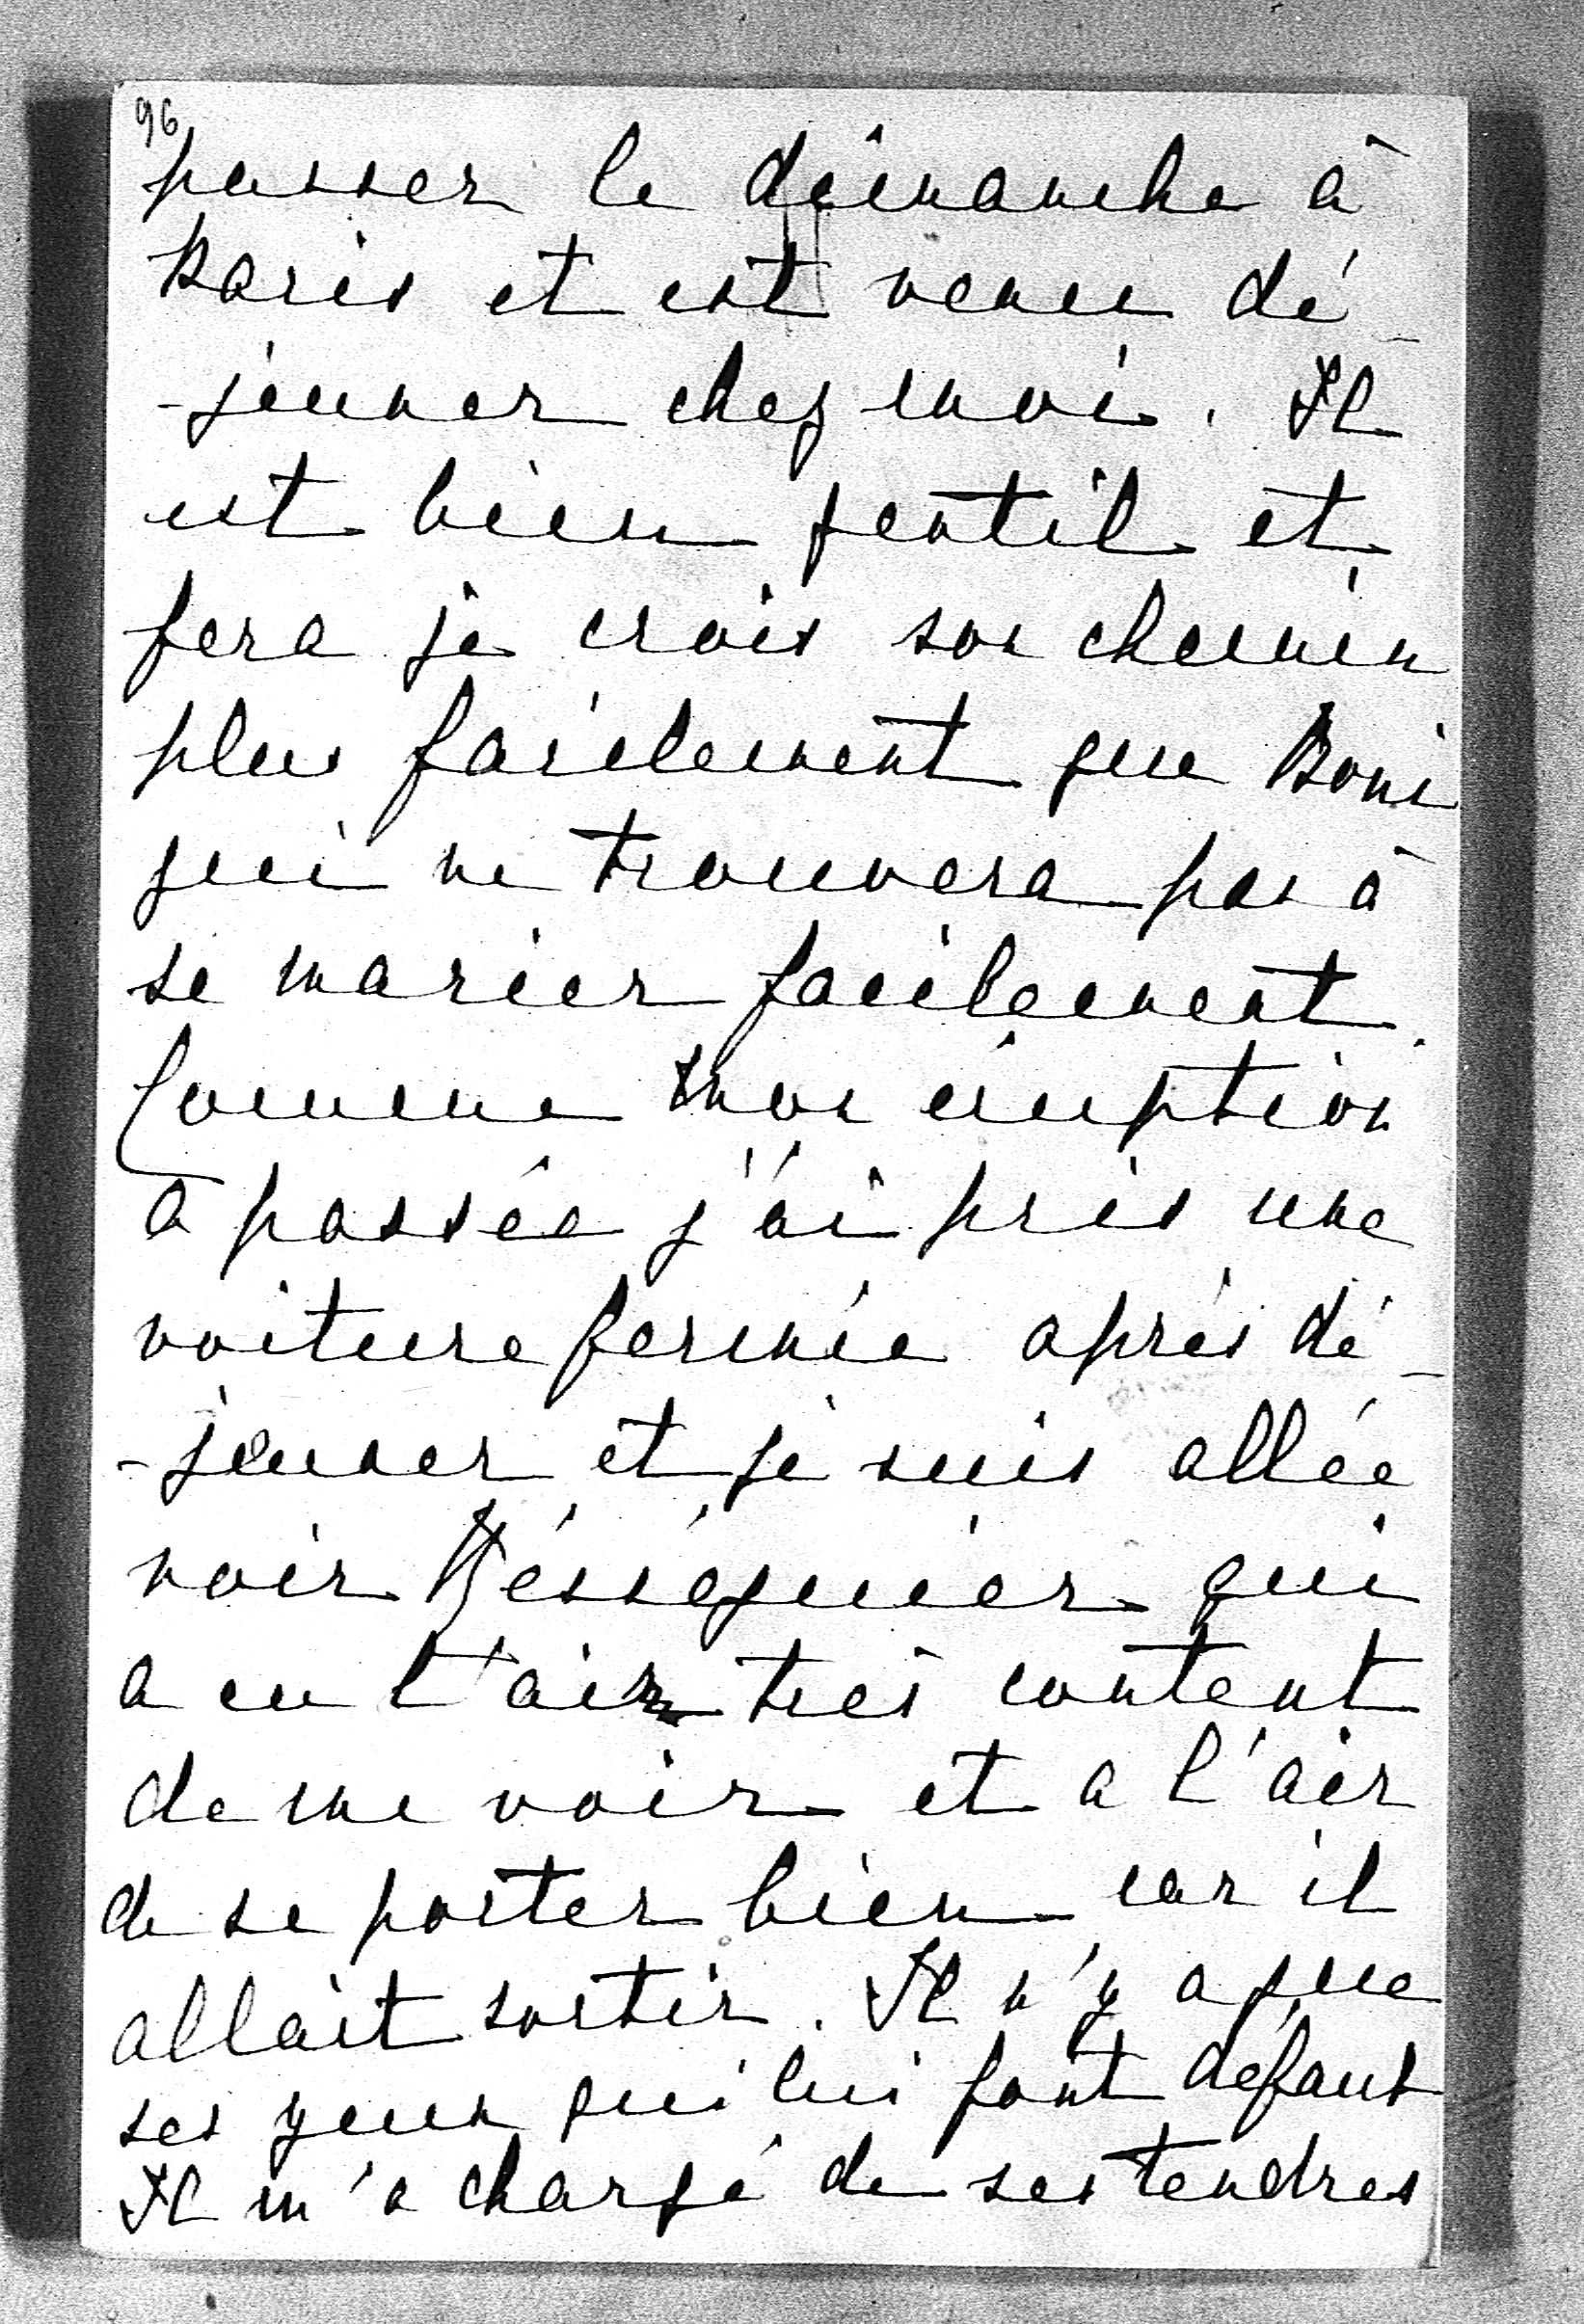 96
passer le dimanche à
Paris et est venu dé
-jeuner chez moi. Il
est bien gentil et
fera je crois son chemin
plus facilement que Boni
qui ne trouvera pas à
se marier facilement.
Comme mon éruption
a passée j'ai pris une
voiture fermée après dé-
-jeuner et je suis allée
voir Bésséguier qui
a eu l'air très content
de me voir et a l'air
de se porter bien car il
allait sortir. Il n'y a que
ses yeux qui lui font défaut
Il m'a chargé de ses tendres